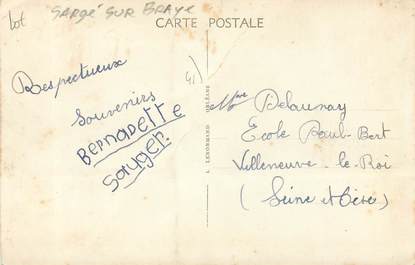 lot
SARGÉ SUR BRAYE
CARTE POSTALE
41)
Respectueux
Souvenirs
BERNADETTE
Sauger
L. LENORMAND ORLÉANS
Mme Delaunay
École Paul-Bert
Villeneuve-le-Roi
(Seine et Oise)